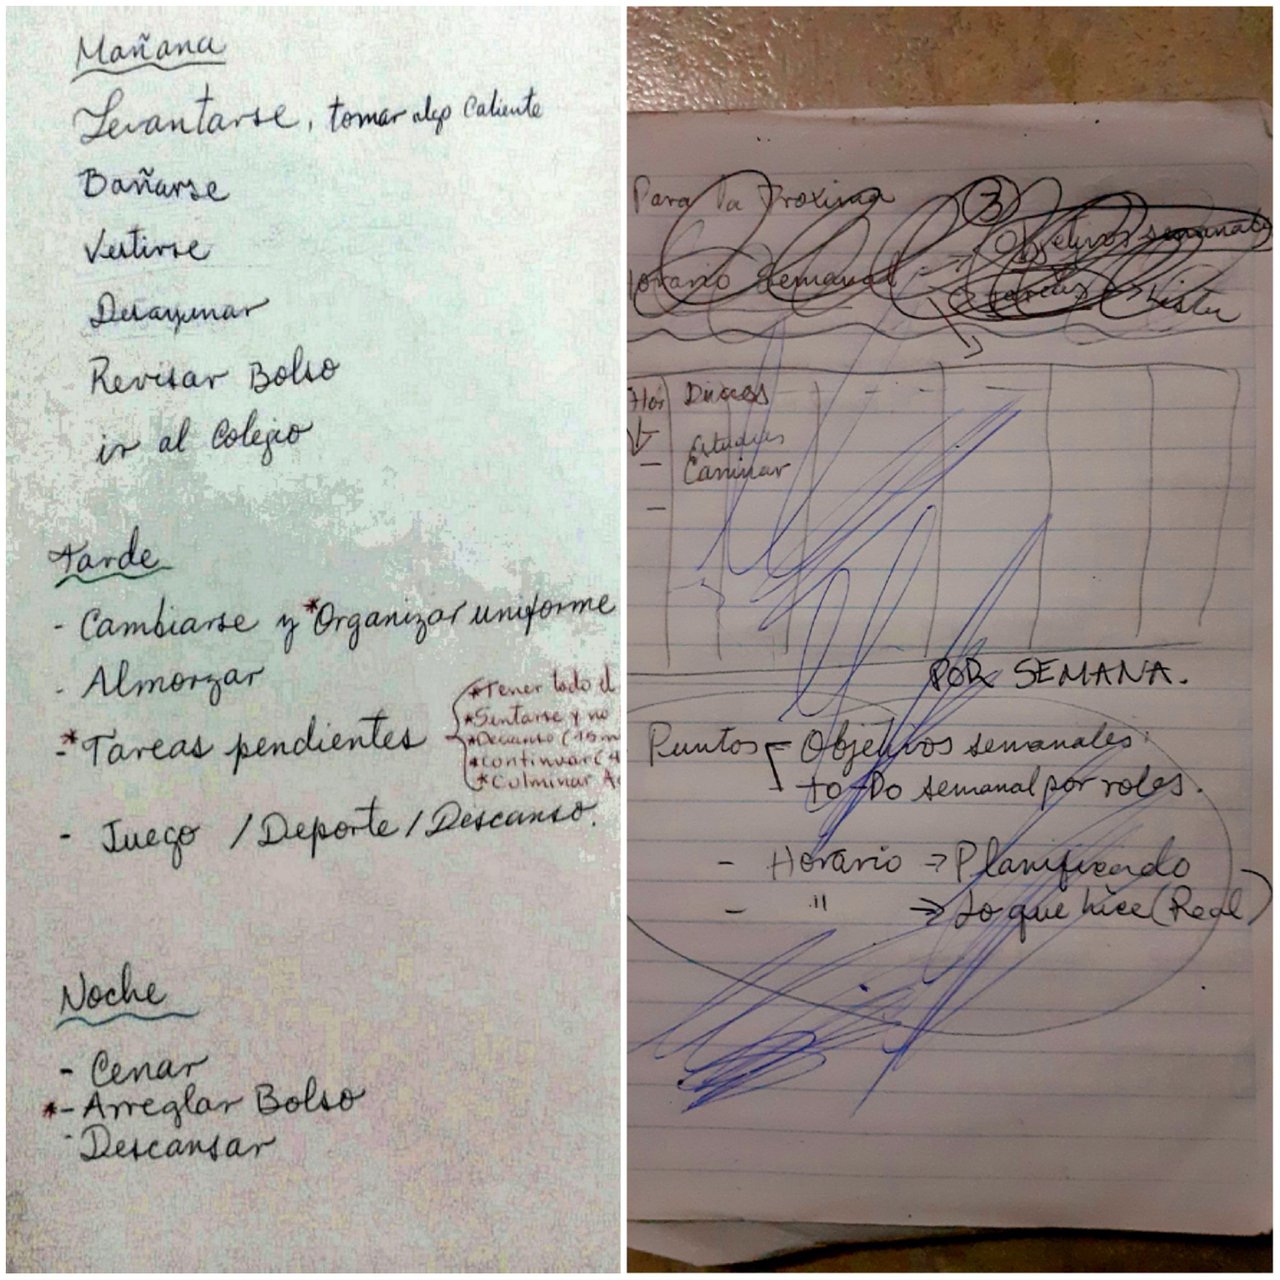 Mañana
Levantarse, tomar algo Caliente
Bañarse
Vestirse
Desayunar
Revisar Bolso
ir al Colegio
Tarde
- Cambiarse y *Organizar uniforme
- Almorzar
*- Tareas pendientes
*Tener todo el
*Sentarse y no
*Descanso (15 m
*Continuar (4
*Culminar A
- Juego / Deporte / Descanso.
Noche
- Cenar
*- Arreglar Bolso
- Descansar
Para la Proxima
3
Objetivos semanales
Horario Semanal →
Caminar
POR SEMANA.
Puntos - Objetivos semanales
- to-Do semanal por roles.
- Horario → Planificado
- " → Lo que hice (Real)